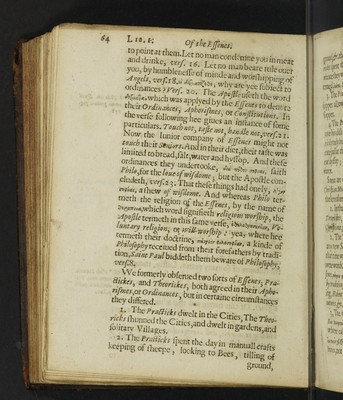 64 LIB. I. Of the Essenes.
to point at them. Let no man condemne you in meat
and drinke, vers. 16. Let no man beare rule over
you, by humblenesse of minde and worshipping of
Angels, vers. 18. why are yee subiect to
ordinances? Vers. 20. The Apostle useth the word
which was applyed by the Essenes to denote
their Ordinances, Aphorismes, or Constitutions. In
the verse following hee giues an instance of some
particulars. Touch not, taste not, handle not, vers. 21.
Now the Iunior company of Essenes might not
touch their Seniors. And in their diet, their taste was
limited to bread, salt, water and hyssop. And these
ordinances they undertooke, saith
Philo, for the loue of wisdome; but the Apostle con-
cludeth, vers. 23. That these things had onely,
a shew of wisdome. And whereas Philo ter-
meth the religion of the Essenes, by the name of
which word signifieth religious worship, the
Apostle termeth in this same verse, Vo-
luntary religion, or will-worship: yea, where hee
termeth their doctrine, a kinde of
Philosophy receiued from their forefathers by tradi-
tion, Saint Paul biddeth them beware of Philosophy,
vers. 8.
We formerly obserued two sorts of Essenes; Pra-
cticks, and Theoricks, both agreed in their Apho-
rismes, or Ordinances, but in certaine circumstances
they differed.
1. The Practicks dwelt in the Cities, The Theo-
ricks shunned the Cities, and dwelt in gardens, and
solitary Villages.
2. The Practicks spent the day in manuall crafts
keeping of sheepe, looking to Bees, tilling of
ground,